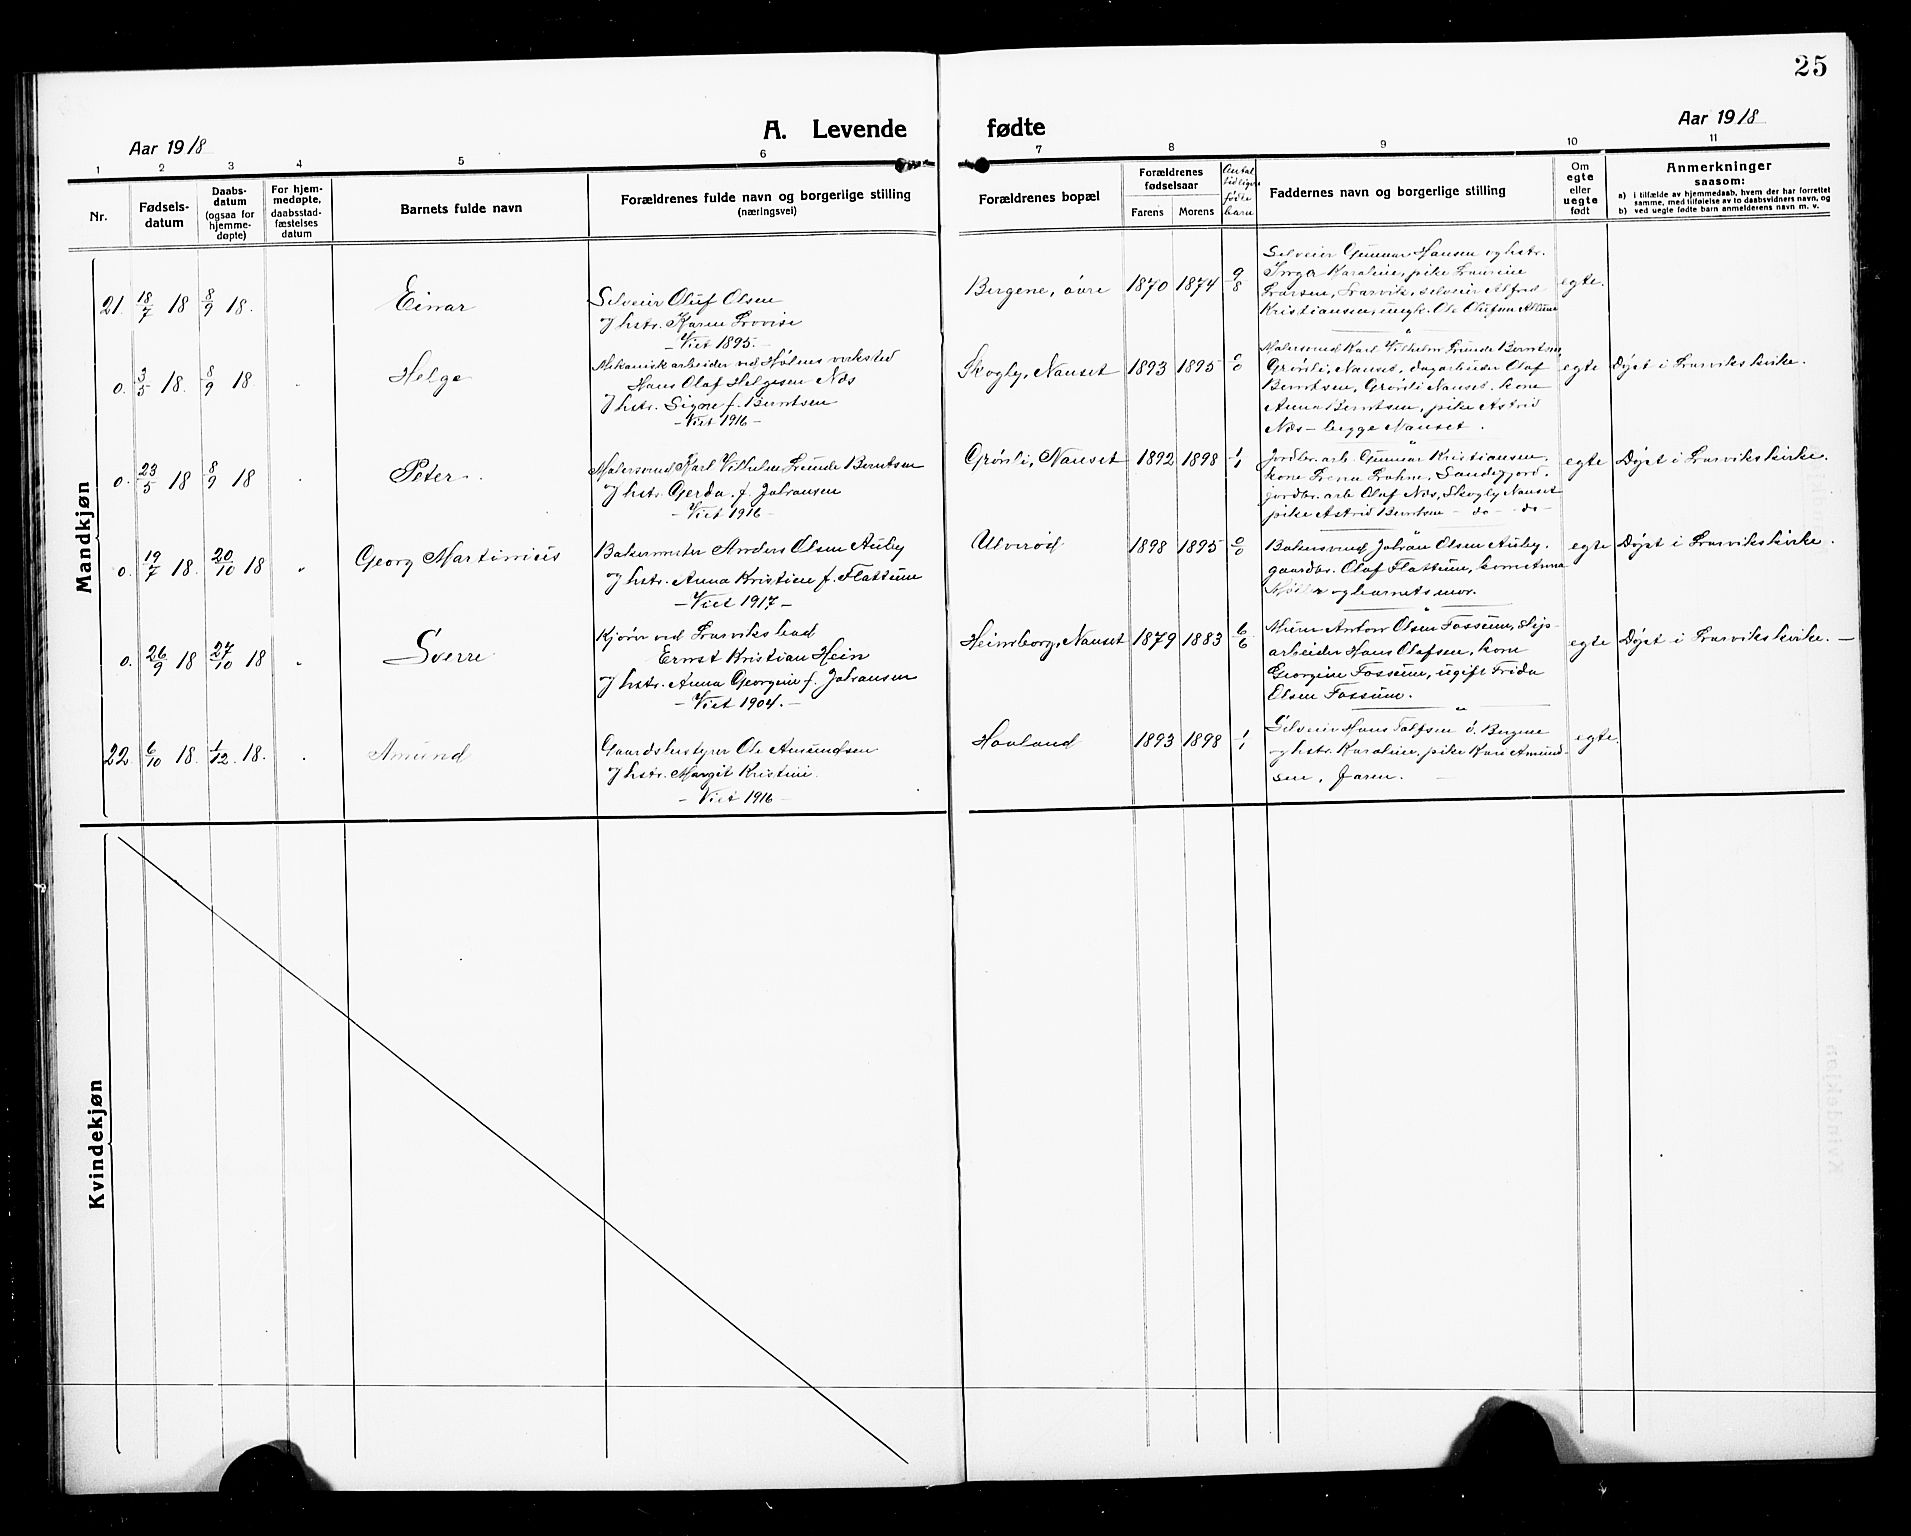 25
Aar 1918
A. Levende fødte
Aar 1918
1 2 3 4 5 6 7 8 9 10 11
Nr.
Fødsels-
datum
Daabs-
datum
(ogsaa for
hjemme-
døpte)
For hjem-
medøpte,
daabsstad-
fæstelses
datum
Barnets fulde navn
Forældrenes fulde navn og borgerlige stilling
(næringsvei)
Forældrenes bopæl
Forældrenes
fødselsaar
Farens Morens
Antal
tidligere
fødte
barn
Faddernes navn og borgerlige stilling
Om
egte
eller
uegte
født
Anmerkninger
saasom:
a) i tilfælde av hjemmedaab, hvem der har forrettet
samme, med tilføielse av to daabsvidners navn, og
b) ved uegte fødte barn anmelderens navn m. v.
Mandkjøn
21. 18/7 18 8/9 18. Einar
Selveier Oluf Olsen
og hstr. Karen Lovise
Viet 1895.
Bergene, øvre 1870 1874 9/8
Selveier Gunnar Hansen og hstr.
Inga Karoline, pike Laurine
Larsen, Larvik, selveier Alfred
Kristiansen, ungk. Ole Olufsen
egte.
0. 3/5 18. 8/9 18 Helge
Mekanisk arbeider ved Hølens verksted
Hans Olaf Helgesen Næs
og hstr. Signe f. Berntsen
- Viet 1916 -
Skogly, Nanset 1893 1895 0/0
Malersvend Karl Vilhelm Lunde Berntsen,
Grønli, Nanset, dagarbeider Olaf
Berntsen, Grønli Nanset, kone
Anna Berntsen, pike Astrid
Næs - begge Nanset.
egte Døpt i Larvikskirke.
0. 23/5 18 8/9 18 Peter
Malersvend Karl Vilhelm Lunde Berntsen
og hstr. Gerda f. Johansen
- Viet 1916 -
Grønli, Nanset 1892 1898 1/1
Jordbr. arb. Gunnar Kristiansen,
kone Lena Sandefjord.
jordbr. arb Olaf Næs, Skogly Nanset
pike Astrid Berntsen - do - do -
egte Døpt i Larvikskirke.
0. 19/7 18. 20/10 18 Georg Martinius
Bakermester Anders Olsen Auby
og hstr. Anna Kristine f. Flattum
- Viet 1917 -
Ulverød 1898 1895 0/0
Bakersvend Johan Olsen Auby,
gaardbr. Olaf Flattum, kone Anna
og barnets mor.
egte Døpt i Larvikskirke.
0. 26/9 18 27/10 18 Sverre
Kjører ved Larviksbad
Ernst Kristian Hein
og hstr. Anna Georgine f. Johansen
- Viet 1904. -
Heimborg, Nanset 1879 1883 6/6
Murer Anton Olsen Fossum, slip-
arbeider Hans Olafsen, kone
Georgine Fossum, ugift Frida
Elsen Fossum.
egte Døpt i Larvikskirke. -
22 6/10 18. 1/12. 18. Amund
Gaardsbestyrer Ole Amundsen
og hstr. Margit Kristine
- Viet 1916 -
Hovland 1893 1898 1/1
Selveier Hans ø. Bergene
og hstr. Karoline, pike Kari Amund
sen, Faren.
egte.
Kvindekjøn